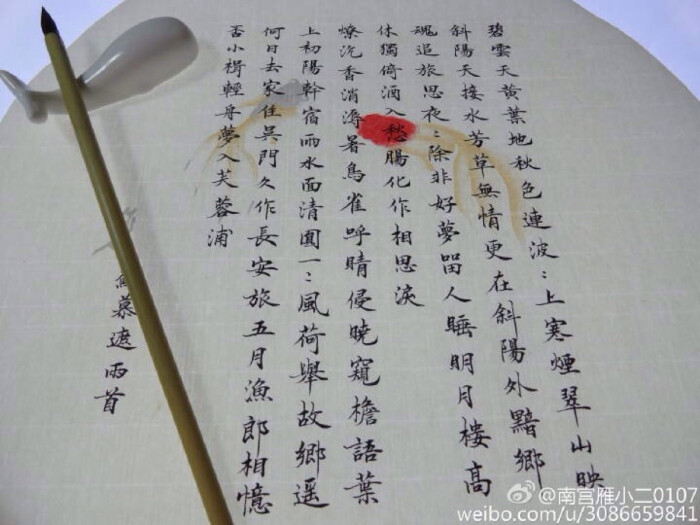 碧雲天黃葉地秋色連波:上寒煙翠山映
斜陽天接水芳草無情更在斜陽外黯鄉
魂追旅思夜:除非好夢畱人睡明月楼高
休獨倚酒入愁腸化作相思淚
燎沉香消溽暑鳥雀呼晴侵曉窺檐語葉
上初陽幹宿雨水面清圓一:風荷舉故鄉遥
何日去家住吳門久作長安旅五月漁郎相憶
否小楫輕舟夢入芙蓉浦
慕遮兩首
@南宫雁小二0107
weibo.com/u/3086659841